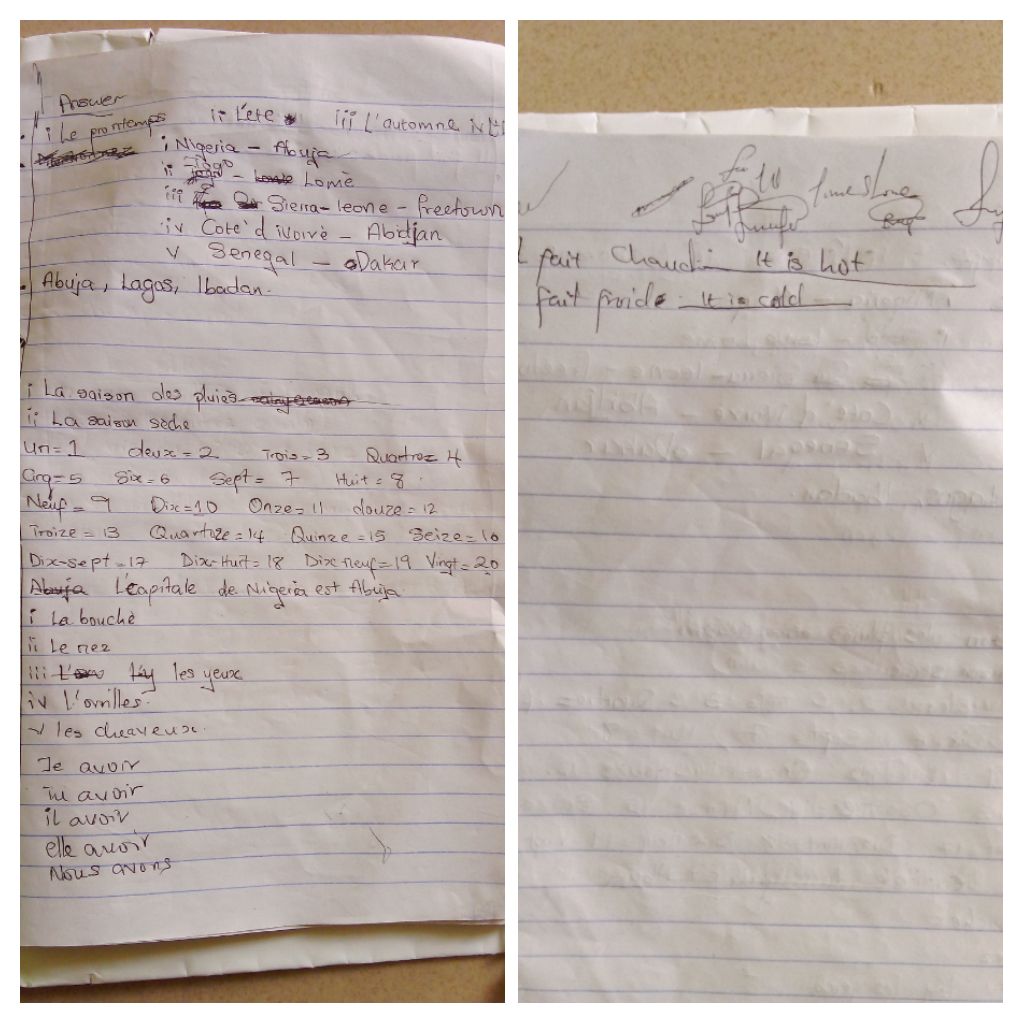 Answer
i Le prontemps ii L'ete iii L'automne iv
i Nigeria - Abuja
ii Togo - Lomè
iii Sierra-leone - freetown
iv Cote' d ivoirè - Abidjan
v Senegal - Dakar
Abuja, Lagos, Ibadan.
i La saison des pluiès
ii La saison sèche
Un=1 deux=2 Trois=3 Quatre=4
Cinq=5 Six=6 Sept=7 Huit=8
Neuf=9 Dix=10 Onze=11 douze=12
Troize=13 Quartoze=14 Quinze=15 Seize=16
Dix-sept=17 Dix-Huit=18 Dix neuf=19 Vingt=20
Abuja L'capitale de Nigeria est Abuja
i La bouchè
ii Le nez
iii les yeux
iv L'orrilles
v les cheaveux.
Je avoir
Tu avoir
il avoir
elle avoir
Nous avons
fait Chaud - It is hot
fait froid - It is cold